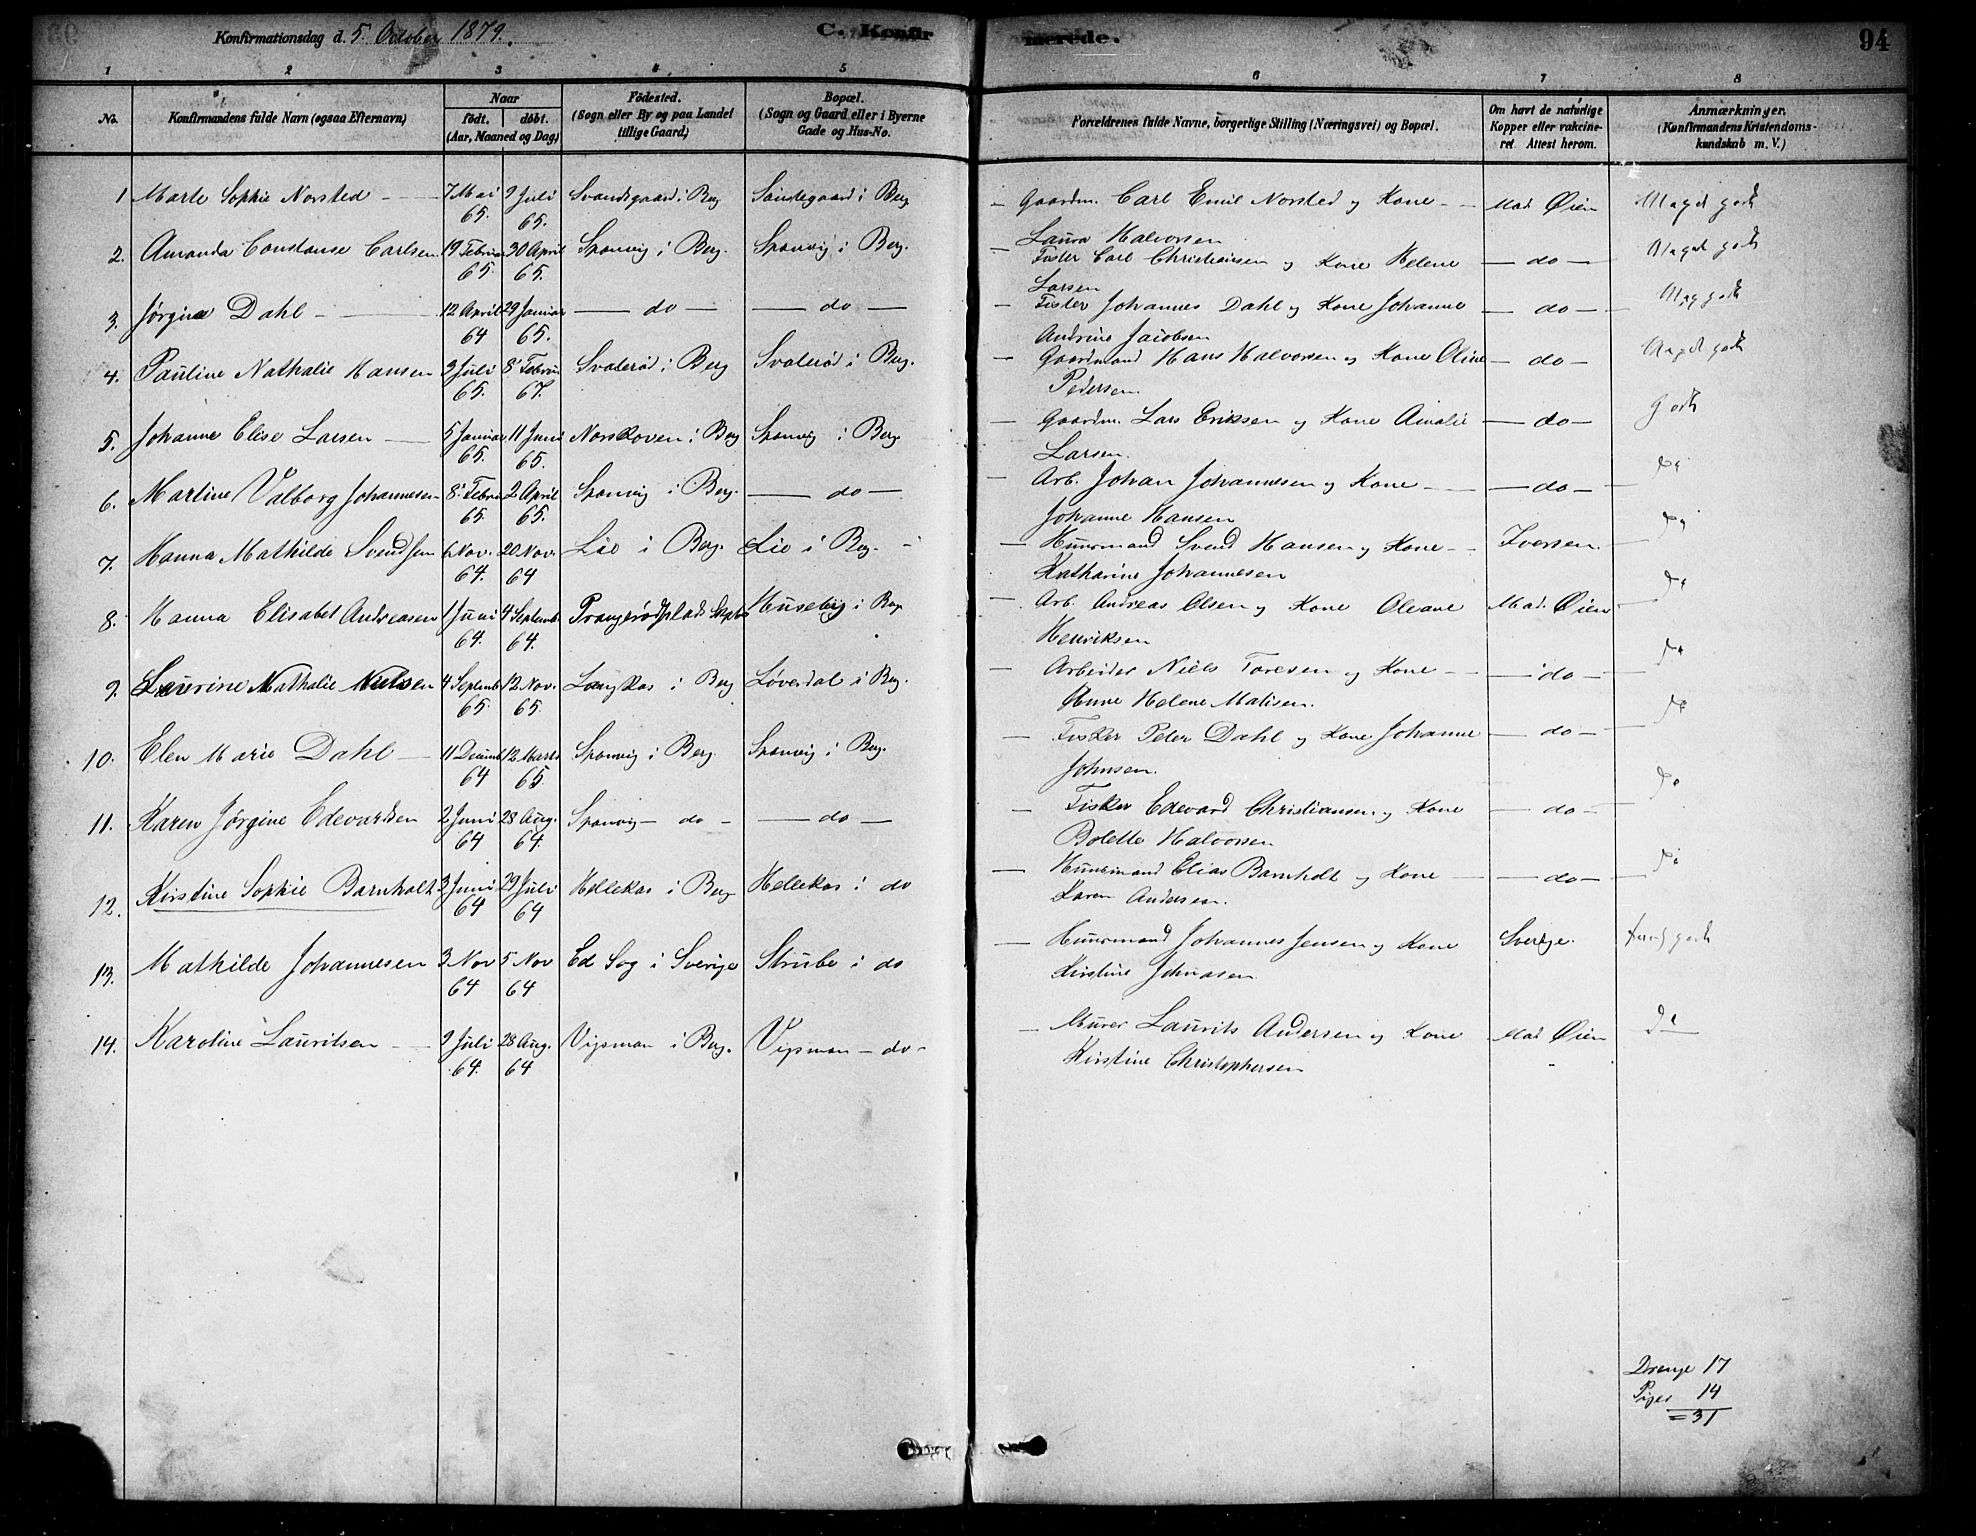 Konfirmationsdag d. 5 October 1879. C. Konfirmerede. 94
1 2 3 4 5 6 7 8
No. Konfirmandens fulde Navn (ogsaa Efternavn) Naar født. døbt. (Aar, Maaned og Dag) Fødested. (Sogn eller By og paa Landet tillige Gaard) Bopæl. (Sogn og Gaard eller i Byerne Gade og Hus-No. Forældrenes fulde Navne, borgerlige Stilling (Næringsvei) og Bopæl. Om havt de naturlige Kopper eller vakcineret Attest herom. Anmærkninger. (Konfirmandens Kristendomskundskab m. V.)
1 Marte Sophie Norsted 7 Mai 65. 9 Juli 65. i Berg i Berg Gaardm. Carl Emil Norsted og Kone Laura Halvorsen Mad Øien Meget godt
2. Amanda Constanse Carlsen 19 Februar 65 30 April 65. Sponvig i Berg. Sponvig i Berg. Carl Christiansen og Kone Helene Larsen do Meget godt
3. Jørgine Dahl 12 April 64 29 Januar 65. do do Fisker Johannes Dahl og Kone Johanne Andrine Jacobsen do Meg godt
4. Pauline Nathalie Hansen 3 Juli 65. 8 Febru 67. Svalerød i Berg Svalerød i Berg. Gaardmand Hans Halvorsen og Kone Oline Pedersen. do Meget godt
5. Johanne Elise Larsen 5 Januar 65. 11 Juni 65. Norskoven i Berg Sponvig i Berg Gaardm. Lars Eriksen og Kone Amalie Larsen. do Godt
6. Martine Valborg Johannesen 8 Febru 65 2 April 65. Sponvig i Berg. do Arb. Johan Johannesen og Kone Johanne Hansen do do
7. Hanna Mathilde Svendsen 6 Nov. 64. 20 Nov. 64 Lie i Berg. Lie i Berg. Huusmand Svend Hansen og Kone Katharine Johannesen Iversen. do
8. Hanna Elisabet Andreasen 1 Juni 64. 4 Septemb 64. Huseby i Berg Arb. Andreas Olsen og Kone Oleane Henriksen Mad. Øien do
9. Laurine Nathalie Nielsen 4 Septemb 65 12 Nov. 65. Langkas i Berg Løverdal i Berg. Arbeider Niels Toresen og Kone Anne Helene Matisen. do do
10. Elen Marie Dahl 11 Decemb 64 12 Marts 65 Sponvig i Berg. Sponvig i Berg. Fisker Peter Dahl og Kone Johanne Johnsen. do do
11. Karen Jørgine Edevardsen 2 Juni 64 28 Aug. 64. Sponvig do do Fisker Edevard Christiansen og Kone Bolette Halvorsen do do
12. Kirstine Sophie Barnholt 3 Juni 64 29 Juli 64 Hellekas i Berg Hellekas i do Huusmand Elias Barnholt og Kone Karen Andersen. do do
13. Mathilde Johannesen 3 Nov 64 5 Nov 64 Ed Sog i Sverige Strube i do Huusmand Johannes Jensen og Kone Kirstine Johnasen Sverige. godt
14. Karoline Lauritsen 9 Juli 64. 28 Aug. 64 Vigsman i Berg. Vigsman do Murer Laurits Andersen og Kone Kirstine Christophersen Mad Øien do
Drenge 17
Piger 14
= 31